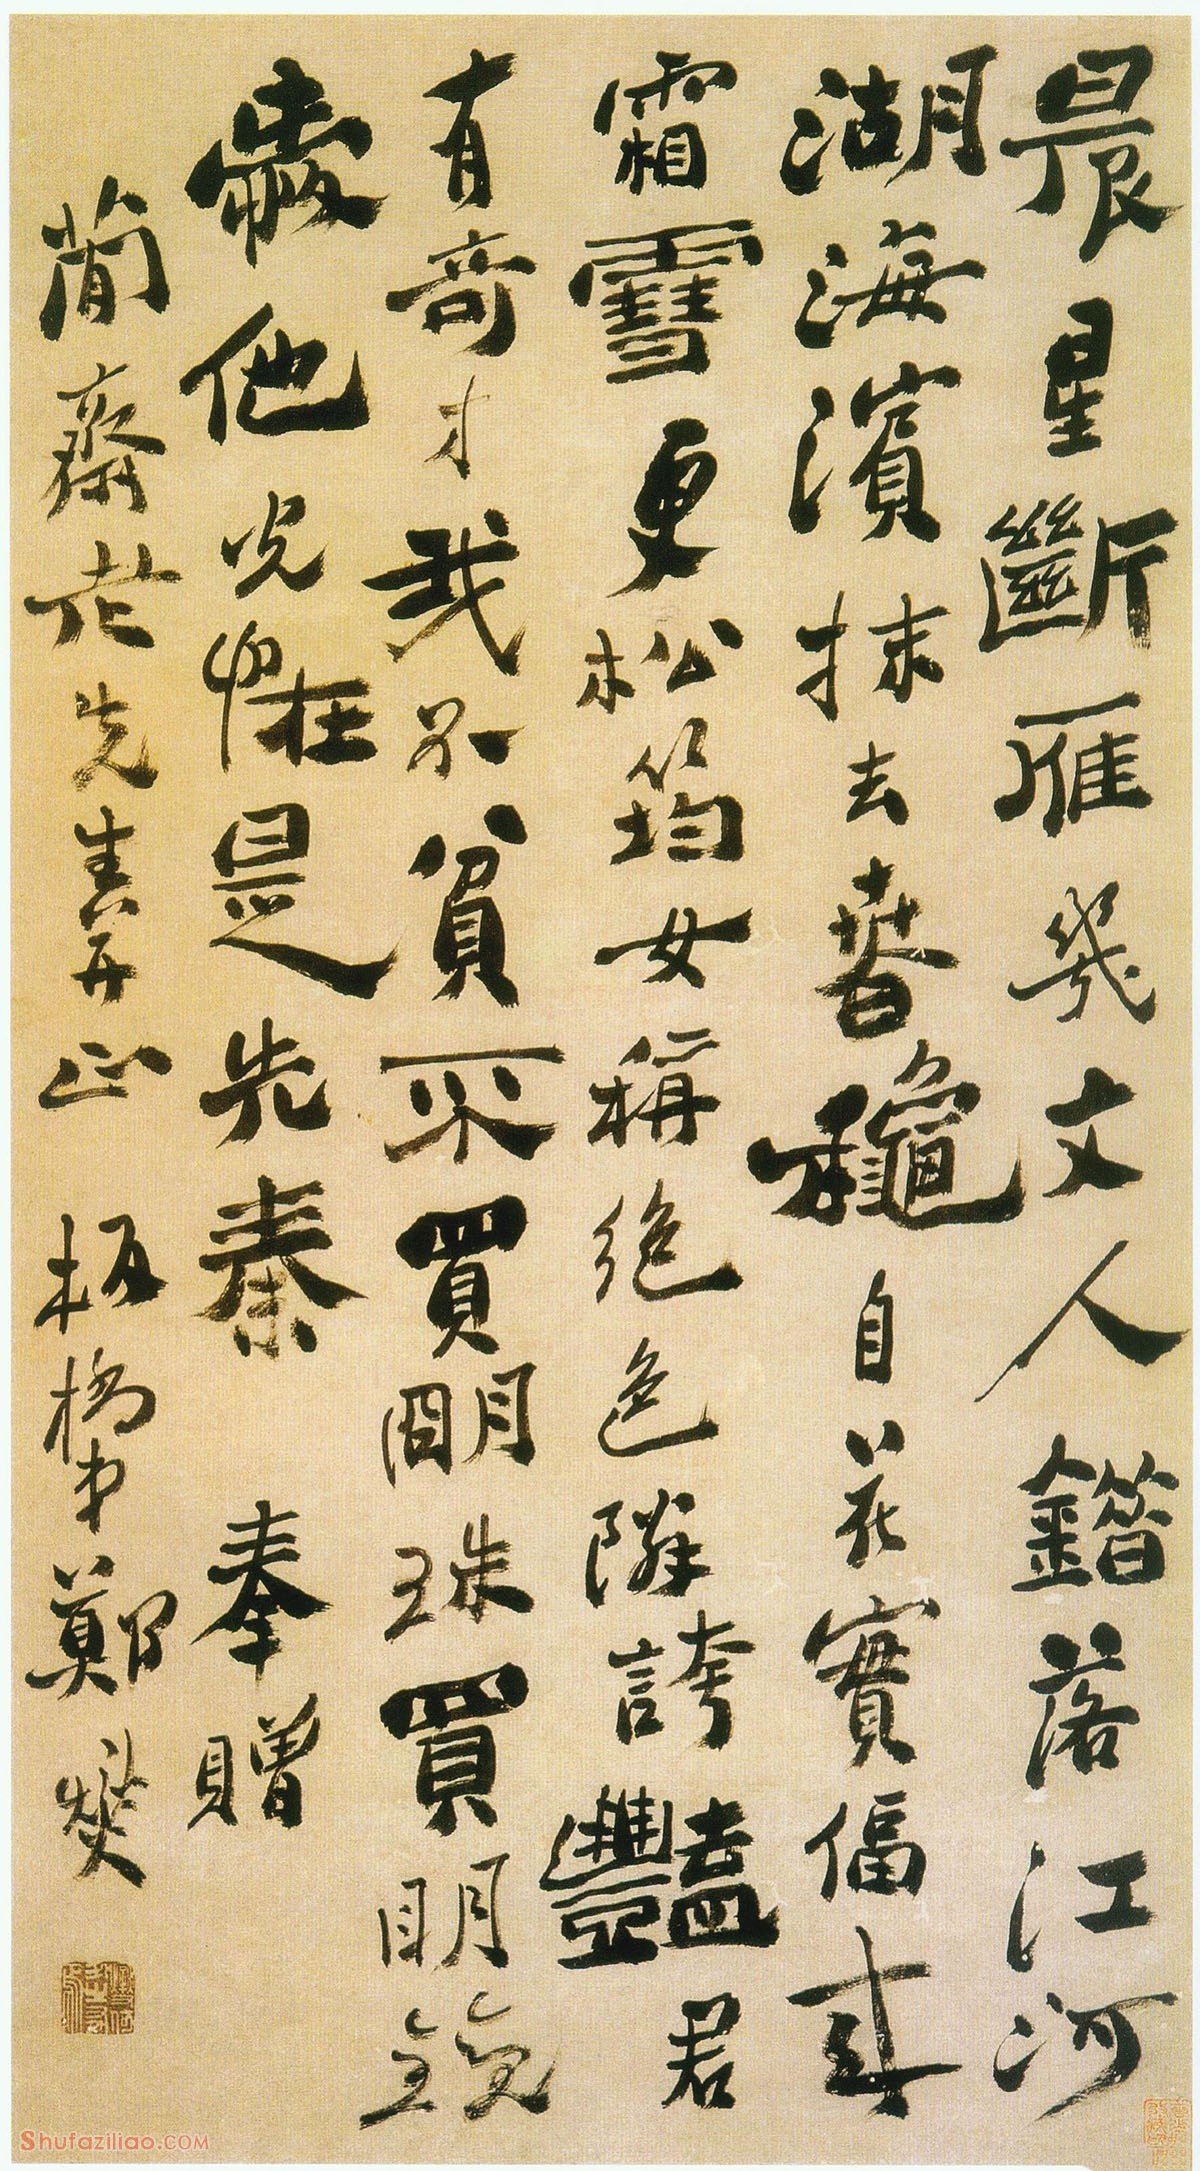 晨星斷雁幾文人錯落江河
湖海濱抹去春秋自花實偪來
霜雪更松筠女稱絕色隣誇豔君
有奇才我不貧不買明珠買明鏡
愛他光怪是先秦 奉贈
簡齋老先生正 板橋弟鄭燮
Shufaziliao.COM